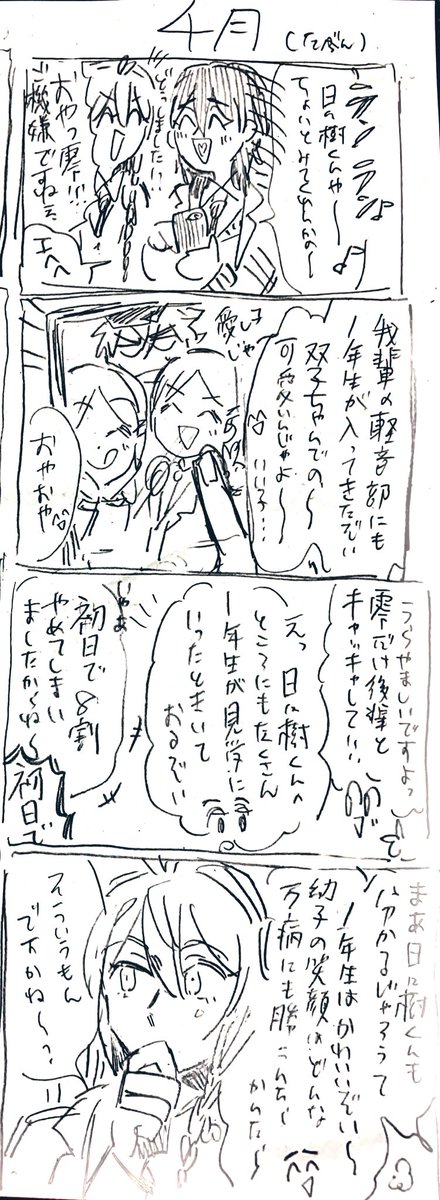 4月
(たぶん)
ランランラン♪
日々樹くんや〜
ちょいとみてくれんかの〜
どうしました!
おやっ零!!!
ご機嫌ですねぇ
我輩の軽音部にも
1年生が入ってきたぞい
双子ちゃんでの〜
可愛いんじゃよ〜
いい子…
愛し子じゃ
おやおや
うらやましいですよっ
零だけ後輩と
キャッキャして!!
えっ日々樹くんの
ところにもたくさん
1年生が見学に
いったときいて
おるぞい
いやぁ
初日で8割
やめてしまい
ましたからね〜
初日で
まあ日々樹くんも
分かるじゃろうて
1年生はかわいいぞい〜
幼子の笑顔はどんな
万病にも勝
そういうもん
ですかね〜?